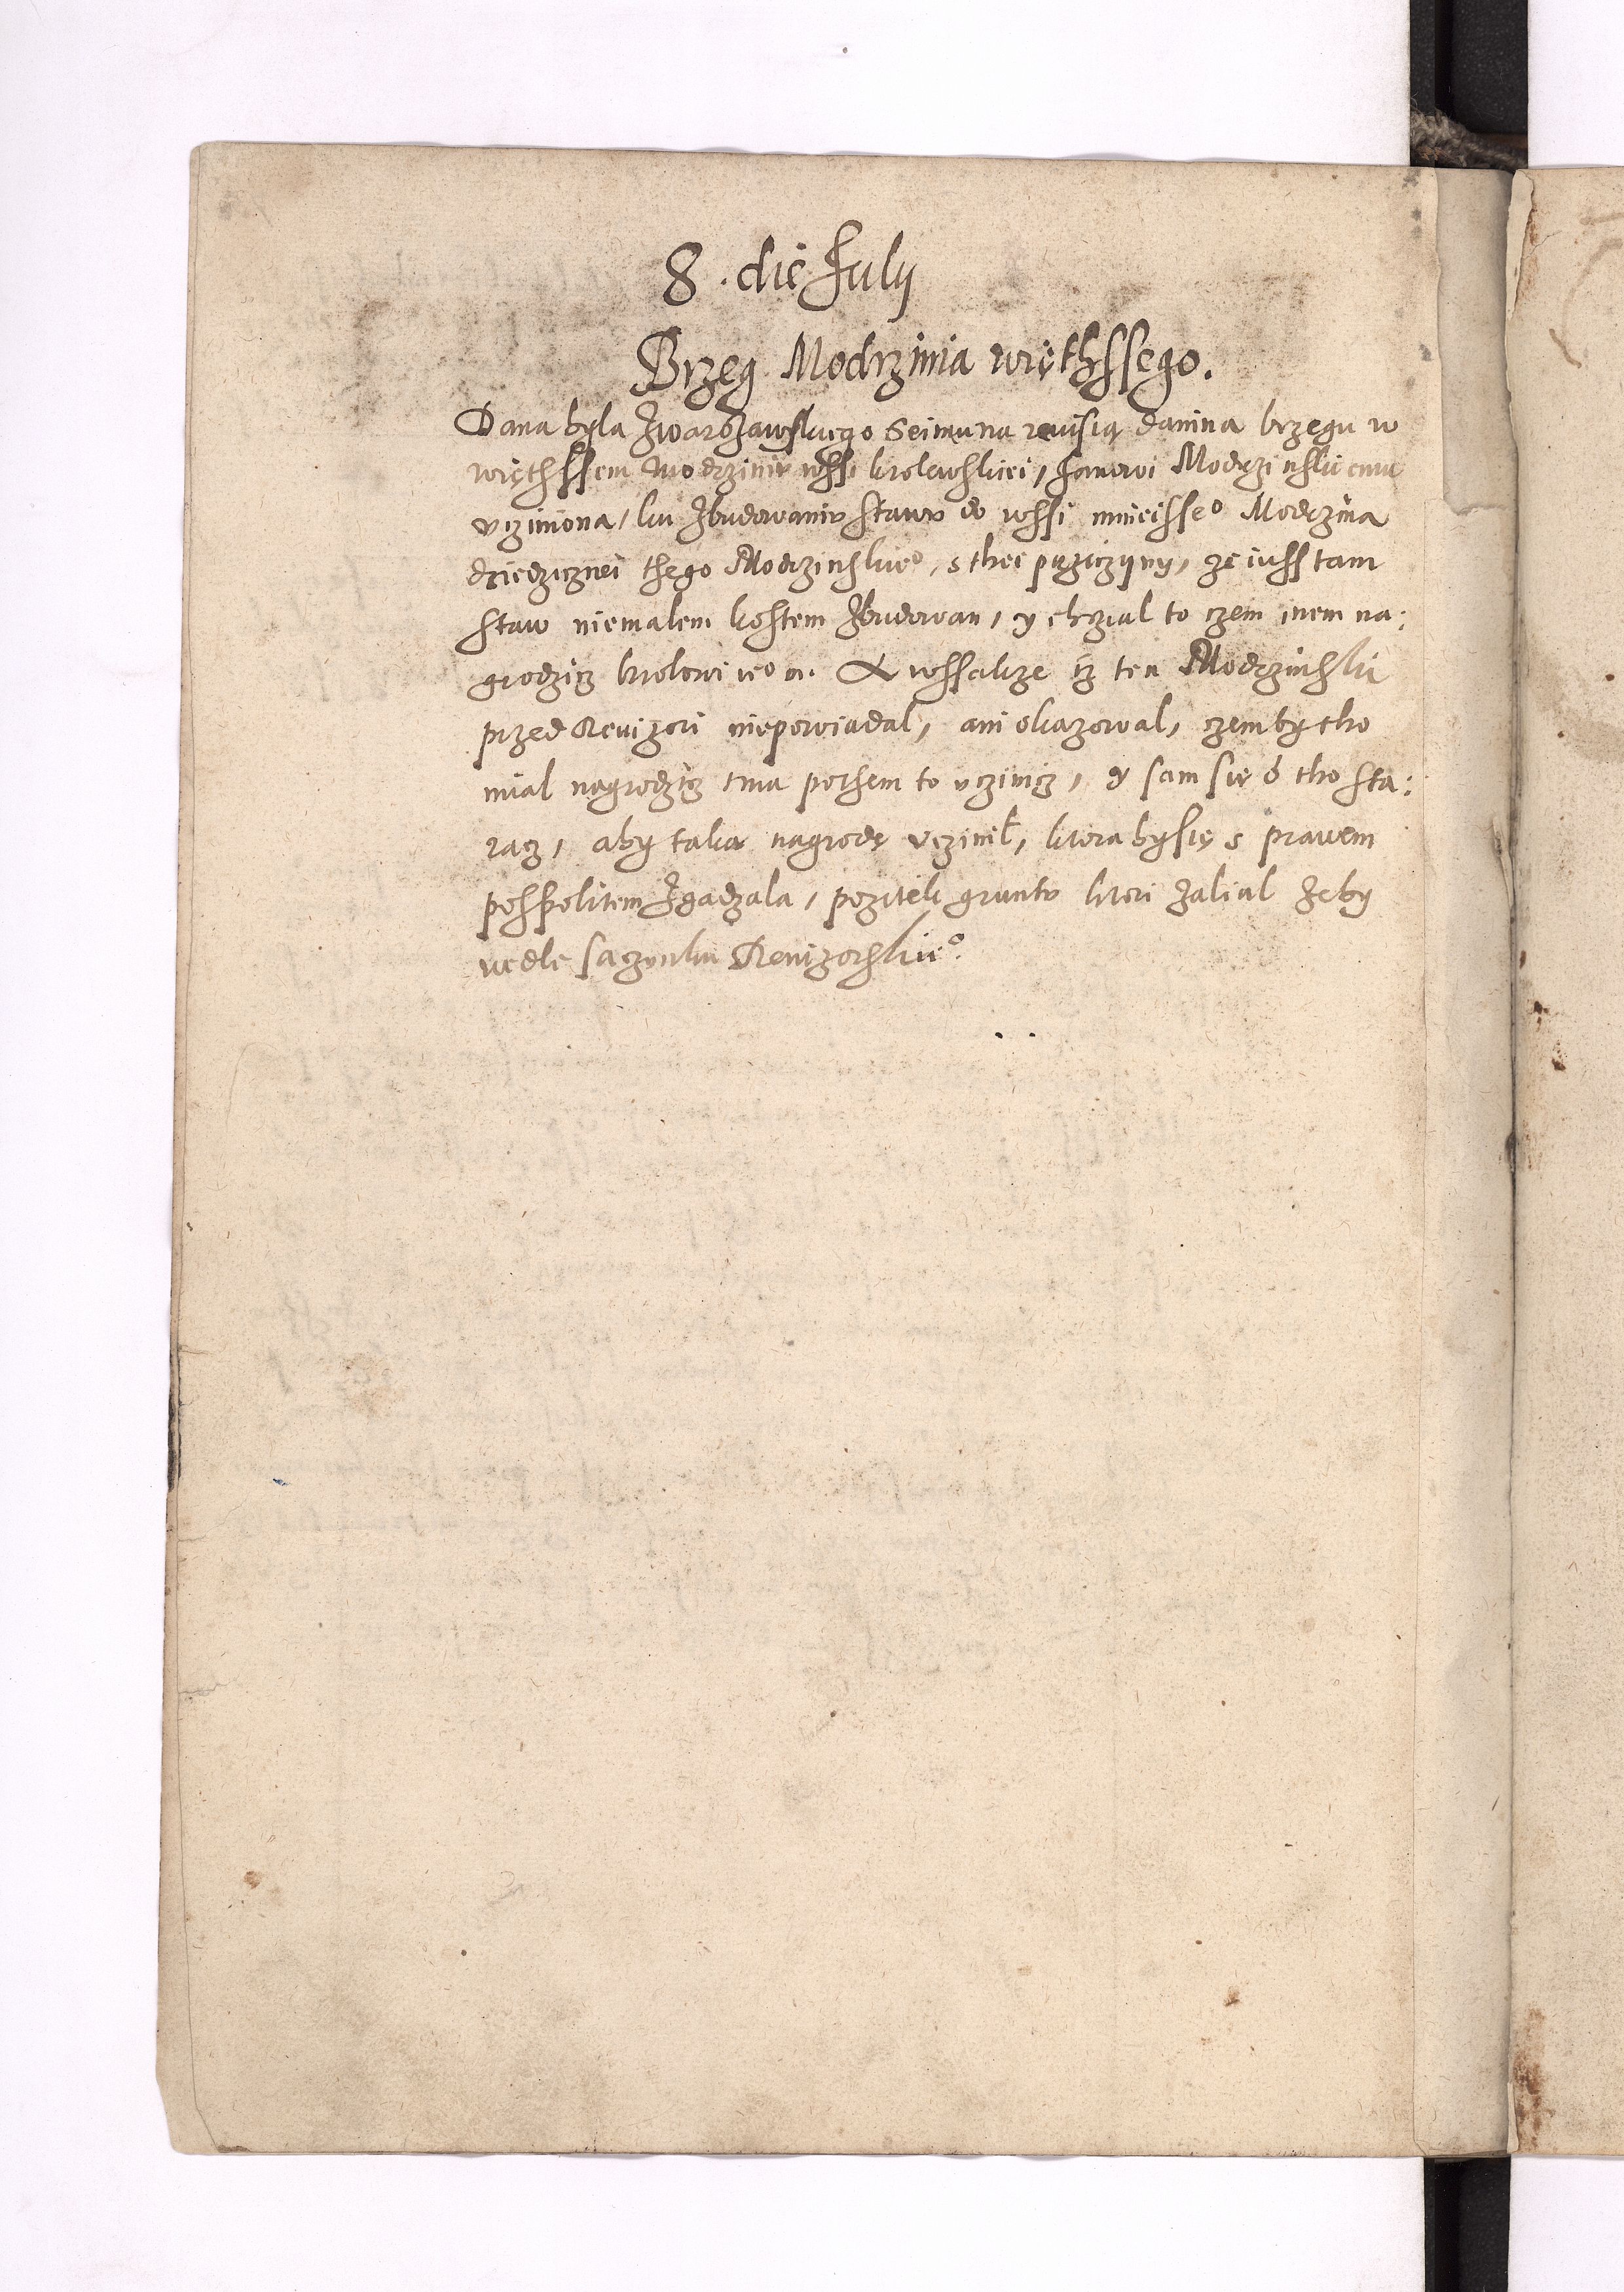 8. die July
Brzeg Modrzinia więthssego.
Dana byla zwarszawskiego Seimu na rewisią danina brzegu w
więthssem Modrziniu wssi krolewskiei, Janowi Modrzinskiemu
vcziniona, ku zbudowaniu stawu do wssi mnieisse⁰ Modrzinia
dziedzicznei thego Modrzinskie⁰, s thei przicziny, ze iuss tam
staw niemalem kostem zbudowan, y chczial to czem inem na:
grodzicz krolowi ie⁰ m. A wssakze iz ten Modrzinski
przed Revizori niepowiadal, ani okazowal, czemby tho
mial nagrodzicz ma pothem to vczinicz, y sam się o tho sta:
racz, aby taka nagrodę vczinil, ktora by się s prawem
pospolitem zgadzala, pozitek gruntu ktori zalial zeby
wedle saczunku Revizorskie⁰.